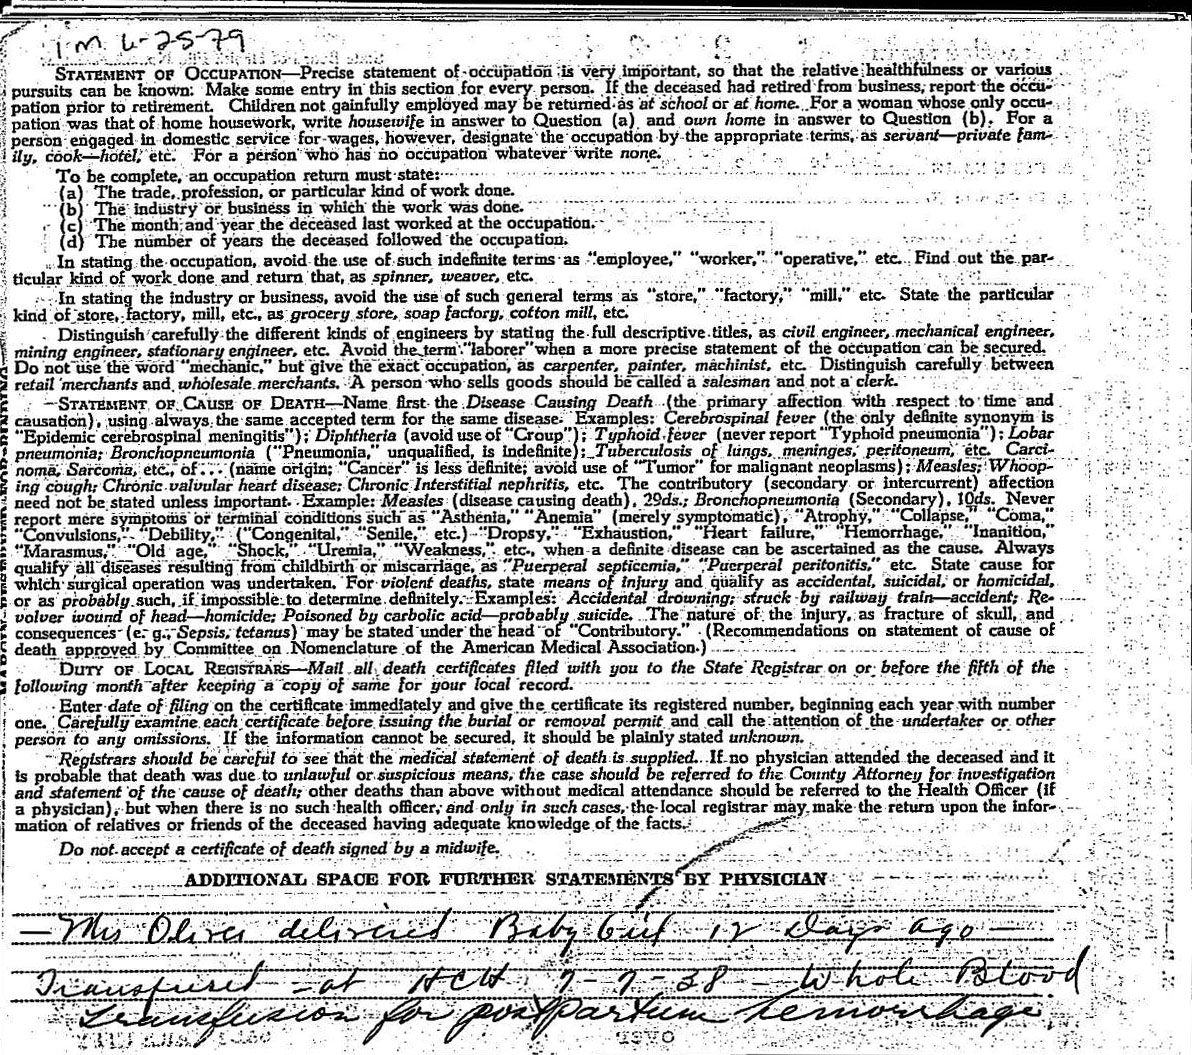 1 M 6-25-79
STATEMENT OF OCCUPATION—Precise statement of occupation is very important, so that the relative healthfulness or various
pursuits can be known. Make some entry in this section for every person. If the deceased had retired from business, report the occu-
pation prior to retirement. Children not gainfully employed may be returned as at school or at home. For a woman whose only occu-
pation was that of home housework, write housewife in answer to Question (a) and own home in answer to Question (b). For a
person engaged in domestic service for wages, however, designate the occupation by the appropriate terms, as servant—private fam-
ily, cook—hotel, etc. For a person who has no occupation whatever write none.
To be complete, an occupation return must state:
(a) The trade, profession, or particular kind of work done.
(b) The industry or business in which the work was done.
(c) The month and year the deceased last worked at the occupation.
(d) The number of years the deceased followed the occupation.
In stating the occupation, avoid the use of such indefinite terms as "employee," "worker," "operative," etc. Find out the par-
ticular kind of work done and return that, as spinner, weaver, etc.
In stating the industry or business, avoid the use of such general terms as "store," "factory," "mill," etc. State the particular
kind of store, factory, mill, etc., as grocery store, soap factory, cotton mill, etc.
Distinguish carefully the different kinds of engineers by stating the full descriptive titles, as civil engineer, mechanical engineer,
mining engineer, stationary engineer, etc. Avoid the term "laborer" when a more precise statement of the occupation can be secured.
Do not use the word "mechanic," but give the exact occupation, as carpenter, painter, machinist, etc. Distinguish carefully between
retail merchants and wholesale merchants. A person who sells goods should be called a salesman and not a clerk.
STATEMENT OF CAUSE OF DEATH—Name first the Disease Causing Death (the primary affection with respect to time and
causation), using always the same accepted term for the same disease. Examples: Cerebrospinal fever (the only definite synonym is
"Epidemic cerebrospinal meningitis"); Diphtheria (avoid use of "Croup"); Typhoid fever (never report "Typhoid pneumonia"); Lobar
pneumonia; Bronchopneumonia ("Pneumonia," unqualified, is indefinite); Tuberculosis of lungs, meninges, peritoneum, etc. Carci-
noma, Sarcoma, etc., of . . . (name origin; "Cancer" is less definite; avoid use of "Tumor" for malignant neoplasms); Measles; Whoop-
ing cough; Chronic valvular heart disease; Chronic Interstitial nephritis, etc. The contributory (secondary or intercurrent) affection
need not be stated unless important. Example: Measles (disease causing death), 29ds.; Bronchopneumonia (Secondary), 10ds. Never
report mere symptoms or terminal conditions such as "Asthenia," "Anemia" (merely symptomatic), "Atrophy," "Collapse," "Coma,"
"Convulsions," "Debility," ("Congenital," "Senile," etc.) "Dropsy," "Exhaustion," "Heart failure," "Hemorrhage," "Inanition,"
"Marasmus," "Old age," "Shock," "Uremia," "Weakness," etc., when a definite disease can be ascertained as the cause. Always
qualify all diseases resulting from childbirth or miscarriage, as "Puerperal septicemia," "Puerperal peritonitis," etc. State cause for
which surgical operation was undertaken. For violent deaths, state means of injury and qualify as accidental, suicidal, or homicidal,
or as probably such, if impossible to determine definitely. Examples: Accidental drowning; struck by railway train—accident; Re-
volver wound of head—homicide; Poisoned by carbolic acid—probably suicide. The nature of the injury, as fracture of skull, and
consequences (e. g., Sepsis, tetanus) may be stated under the head of "Contributory." (Recommendations on statement of cause of
death approved by Committee on Nomenclature of the American Medical Association.)
DUTY OF LOCAL REGISTRARS—Mail all death certificates filed with you to the State Registrar on or before the fifth of the
following month after keeping a copy of same for your local record.
Enter date of filing on the certificate immediately and give the certificate its registered number, beginning each year with number
one. Carefully examine each certificate before issuing the burial or removal permit and call the attention of the undertaker or other
person to any omissions. If the information cannot be secured, it should be plainly stated unknown.
Registrars should be careful to see that the medical statement of death is supplied. If no physician attended the deceased and it
is probable that death was due to unlawful or suspicious means, the case should be referred to the County Attorney for investigation
and statement of the cause of death; other deaths than above without medical attendance should be referred to the Health Officer (if
a physician), but when there is no such health officer, and only in such cases, the local registrar may make the return upon the infor-
mation of relatives or friends of the deceased having adequate knowledge of the facts.
Do not accept a certificate of death signed by a midwife.
ADDITIONAL SPACE FOR FURTHER STATEMENTS BY PHYSICIAN
— Mrs Oliver delivered Baby Girl 12 Days ago —
Transfused - at HCH 7-7-38 - Whole Blood
transfusion for post partum hemorrhage